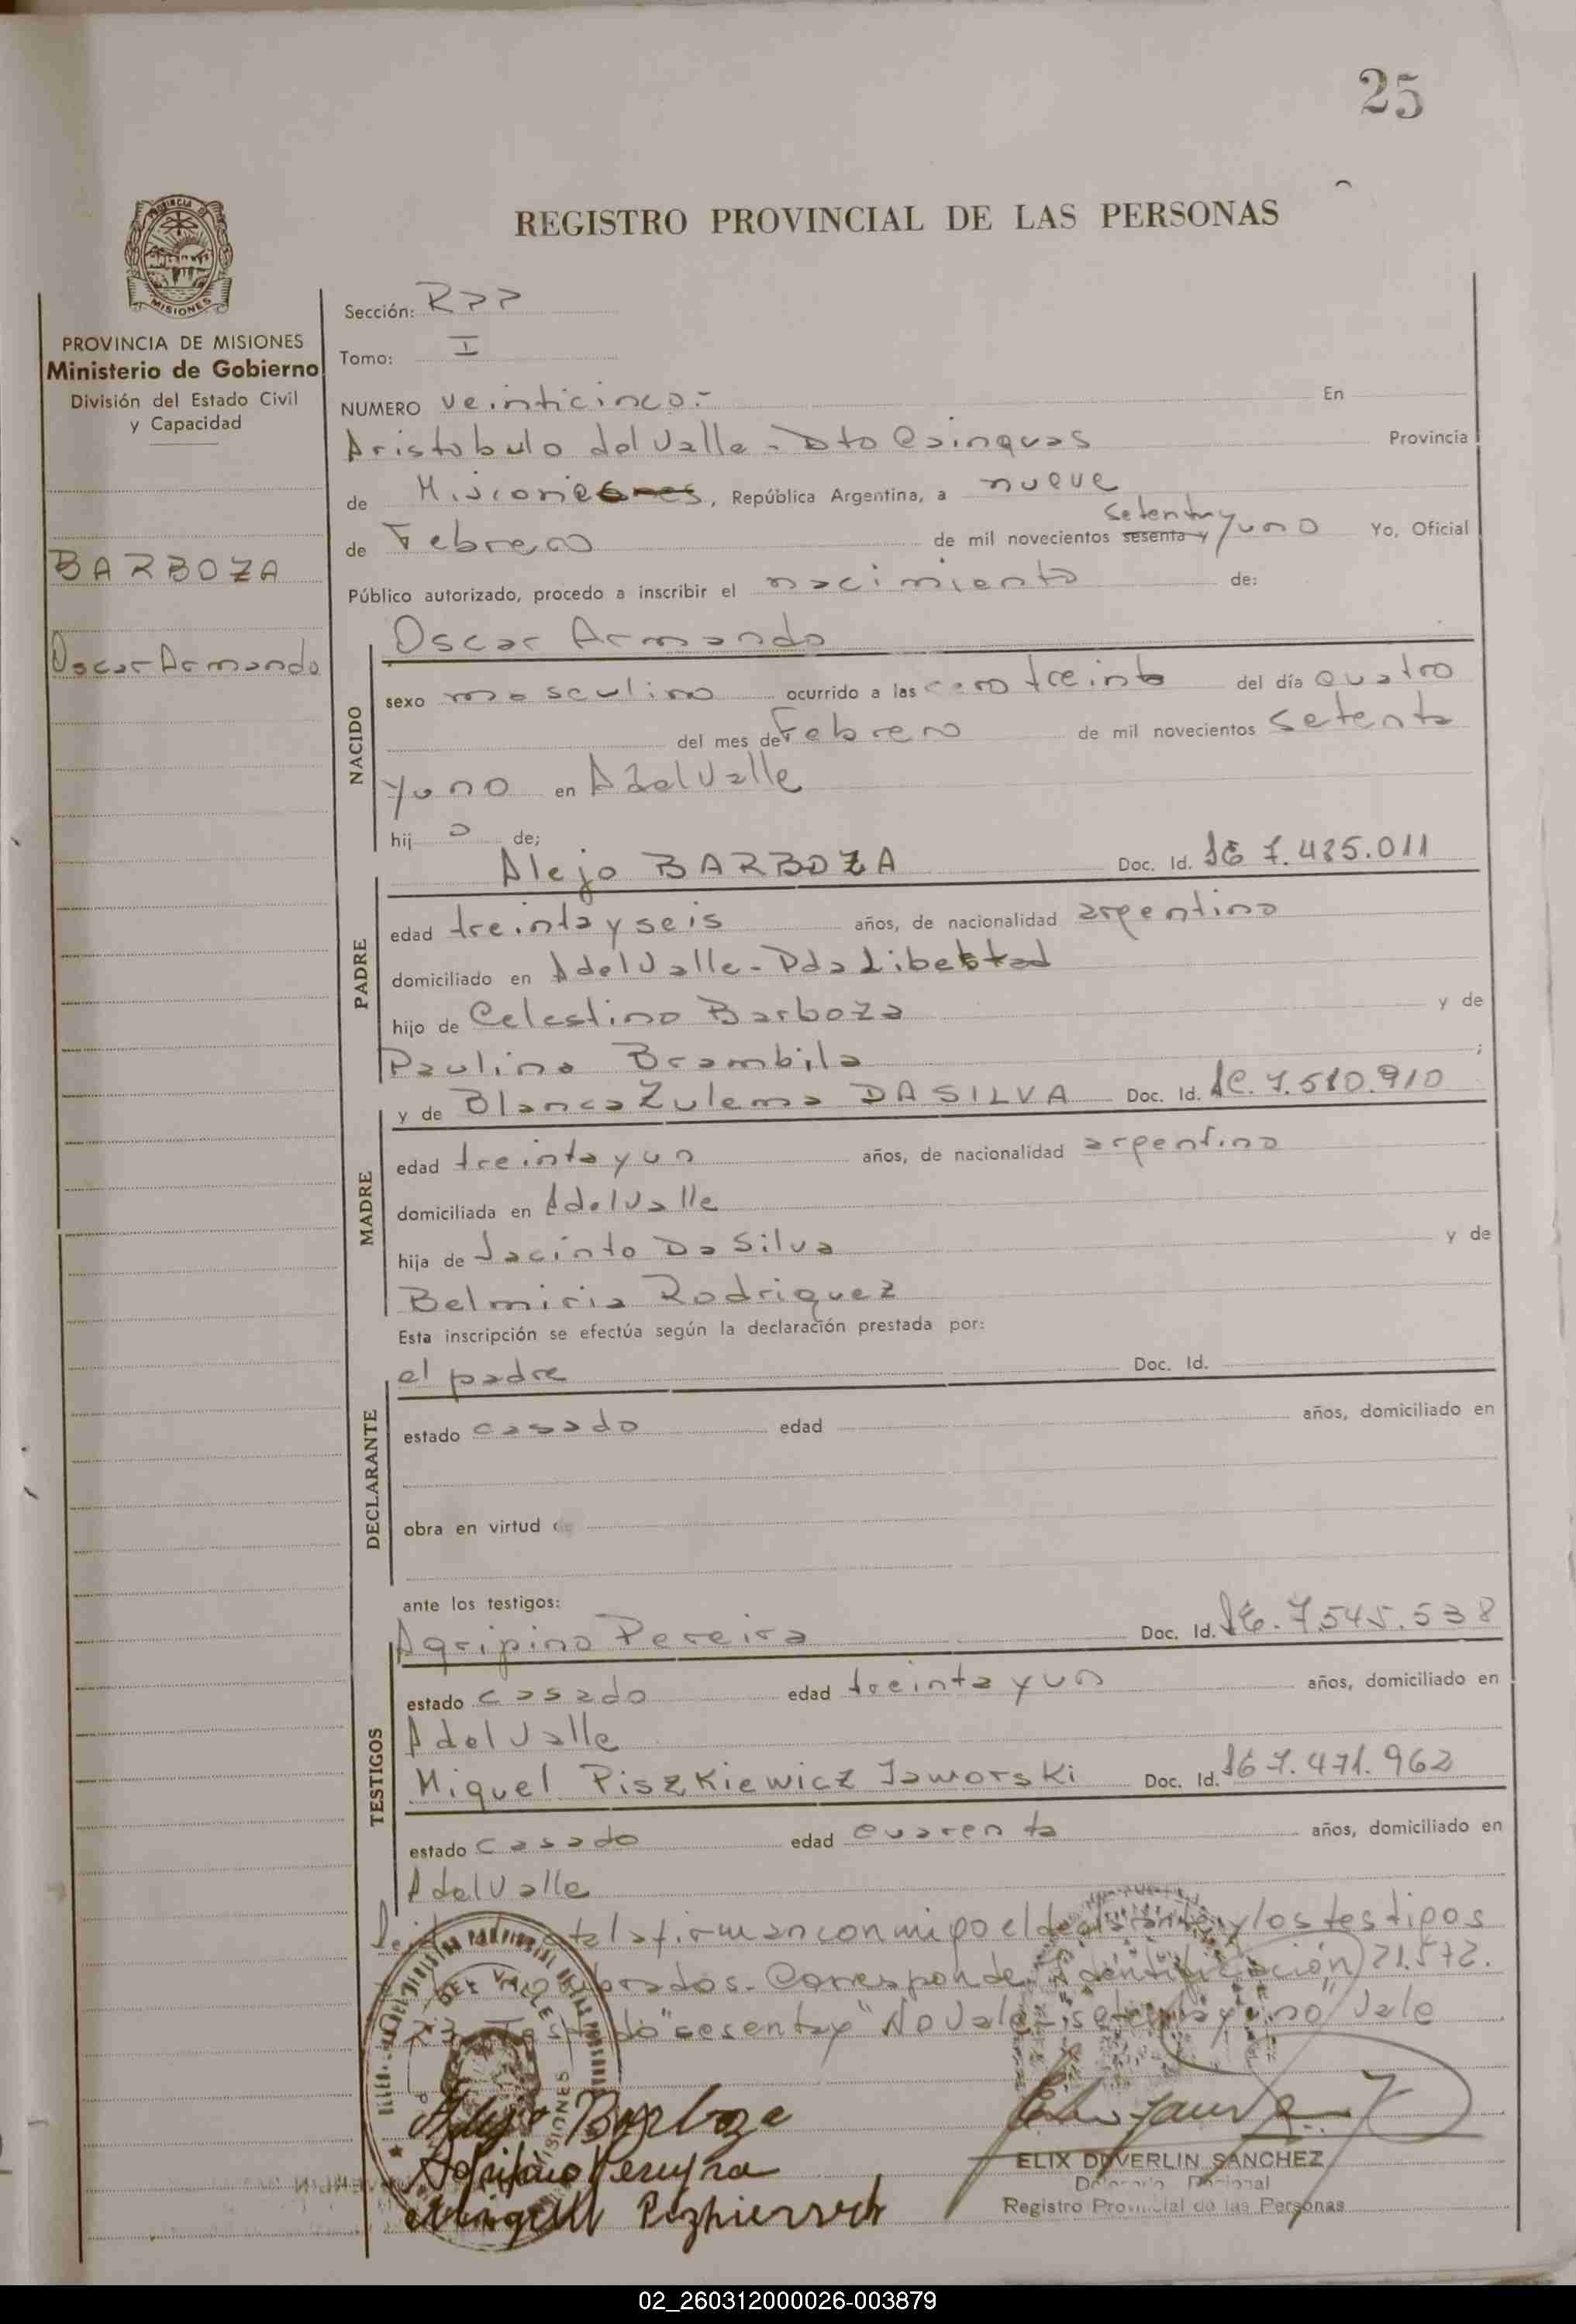 25
REGISTRO PROVINCIAL DE LAS PERSONAS
PROVINCIA DE
MISIONES
PROVINCIA DE MISIONES
Ministerio de Gobierno
División del Estado Civil
y Capacidad
BARBOZA
Oscar Armando
Sección: RPP
Tomo: I
NUMERO veinticinco.- En
Aristobulo del Valle - Dto Cainguas Provincia
de Misiones, República Argentina, a nueve
setenta y uno
de Febrero de mil novecientos sesenta y Yo, Oficial
Público autorizado, procedo a inscribir el nacimiento de:
NACIDO
Oscar Armando
sexo masculino ocurrido a las cero treinta del día cuatro
del mes de Febrero de mil novecientos setenta
y uno en A del Valle
hij o de;
PADRE
Alejo BARBOZA Doc. Id. 7.485.011
edad treinta y seis años, de nacionalidad argentina
domiciliado en A del Valle - Pda Libertad
hijo de Celestino Barboza y de
Paulina Brambila ;
MADRE
y de Blanca Zulema DA SILVA Doc. Id. 7.510.910
edad treinta y un años, de nacionalidad argentina
domiciliada en A del Valle
hija de Jacinto Da Silva y de
Belmiria Rodriguez
Esta inscripción se efectúa según la declaración prestada por:
DECLARANTE
el padre Doc. Id.
estado casado edad años, domiciliado en
obra en virtud de
ante los testigos:
TESTIGOS
Agripino Pereira Doc. Id. 7.545.538
estado casado edad treinta y un años, domiciliado en
A del Valle
Miguel Piszkiewicz Jaworski Doc. Id. 7.471.962
estado casado edad cuarenta años, domiciliado en
A del Valle
acta la firman conmigo el declarante y los testigos
Corresponde identificación 21.572.
"sesenta y" No vale "setenta y uno" Vale
DEL VALLE
MISIONES
Alejo Barboza
Agripino Pereyra
ELIX DUVERLIN SANCHEZ
Registro Provincial de las Personas
02_260312000026-003879